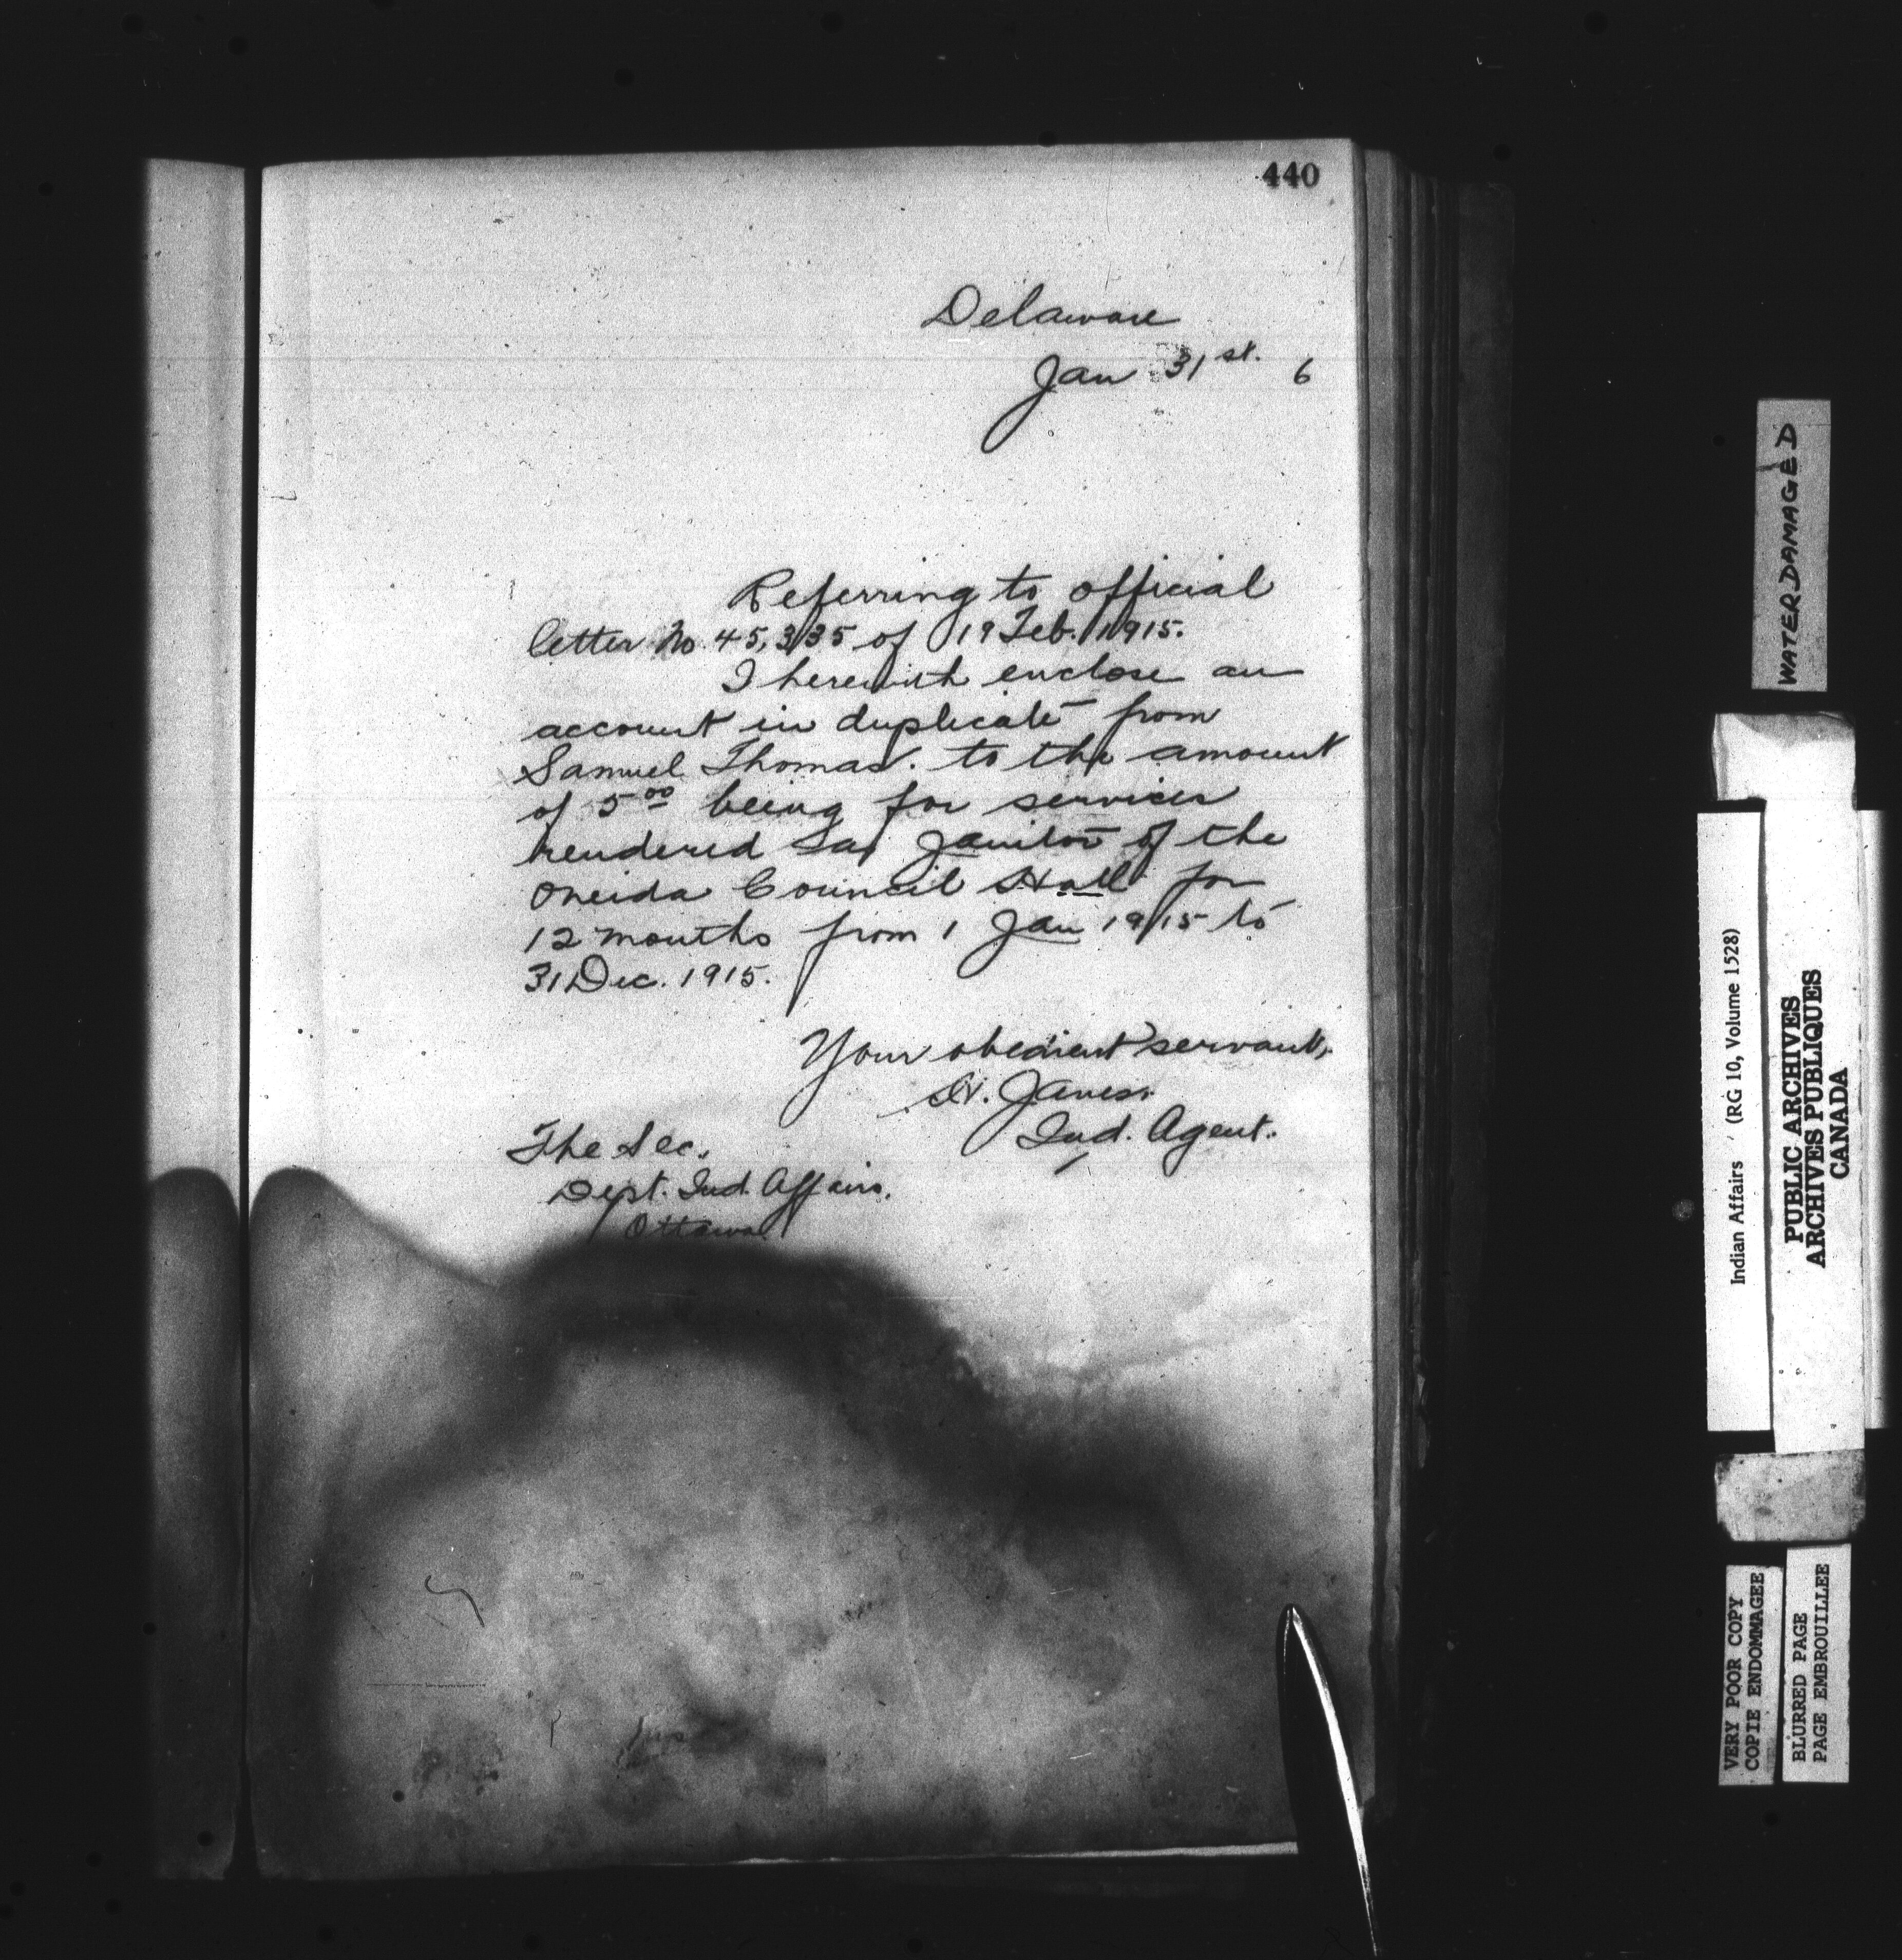 440
Delaware
Jan 31st. 6
Referring to official
letter No 45,335 of 19 Feb. 1915.
I herewith enclose an
account in duplicate from
Samuel Thomas. to the amount
of 5 00 being for services
rendered as Janitor of the
Oneida Council Hall for
12 months from 1 Jan 1915 to
31 Dec. 1915.
Your obedient servant,
Ind. Agent.
The Sec.
Dept. Ind. Affairs.
Ottawa
WATER DAMAGED
Indian Affairs (RG 10, Volume 1528)
PUBLIC ARCHIVES
ARCHIVES PUBLIQUES
CANADA
VERY POOR COPY
COPIE ENDOMMAGEE
BLURED PAGE
PAGE EMBROUILLEE